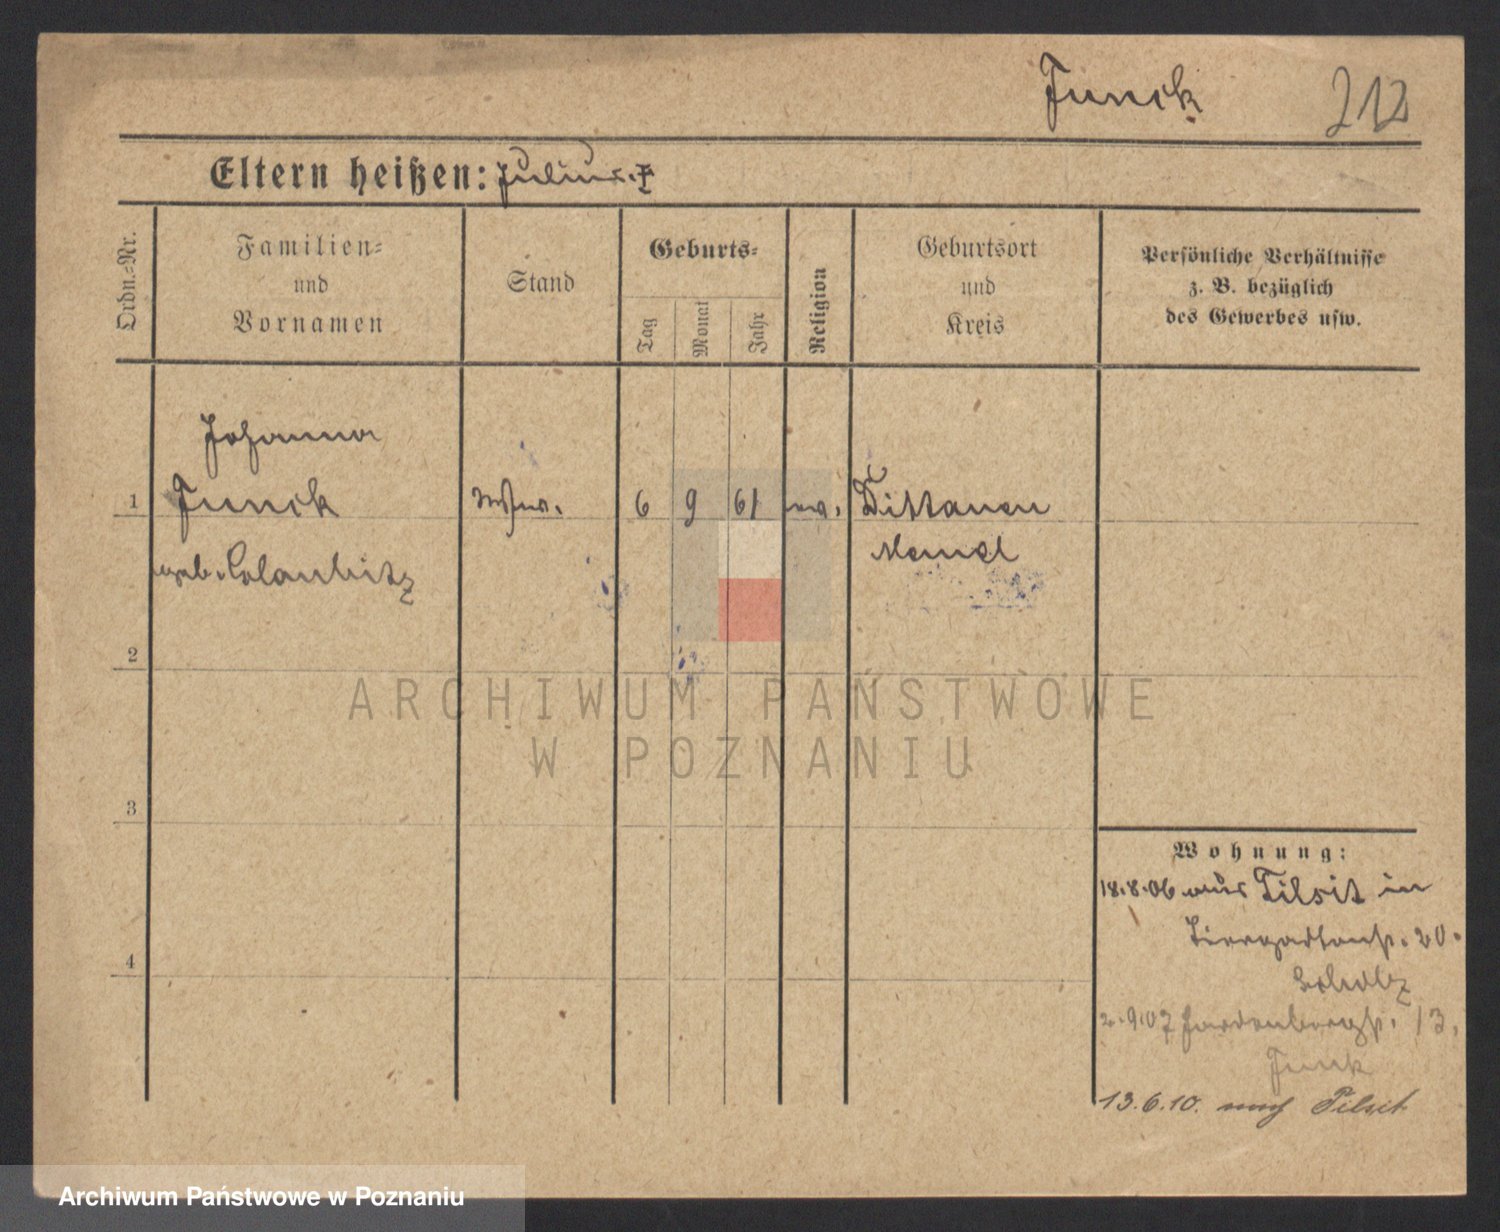 Funck 212
Eltern heißen: Julius. F
Ordn.=Nr.
Familien=
und
Vornamen
Stand
Geburts=
Tag
Monat
Jahr
Religion
Geburtsort
und
Kreis
Persönliche Verhältnisse
z. B. bezüglich
des Gewerbes usw.
Johanna
1 Funck Wwe. 6 9 61 ev. Dittauen
geb. Claubitz Memel
2
3
4
ARCHIWUM PAŃSTWOWE
W POZNANIU
Wohnung:
18.8.06 aus Tilsit in
Tiergartenstr. 20.
Scholz
2.9.07 Hardenbergstr. 13.
Funk
13.6.10. nach Tilsit
Archiwum Państwowe w Poznaniu